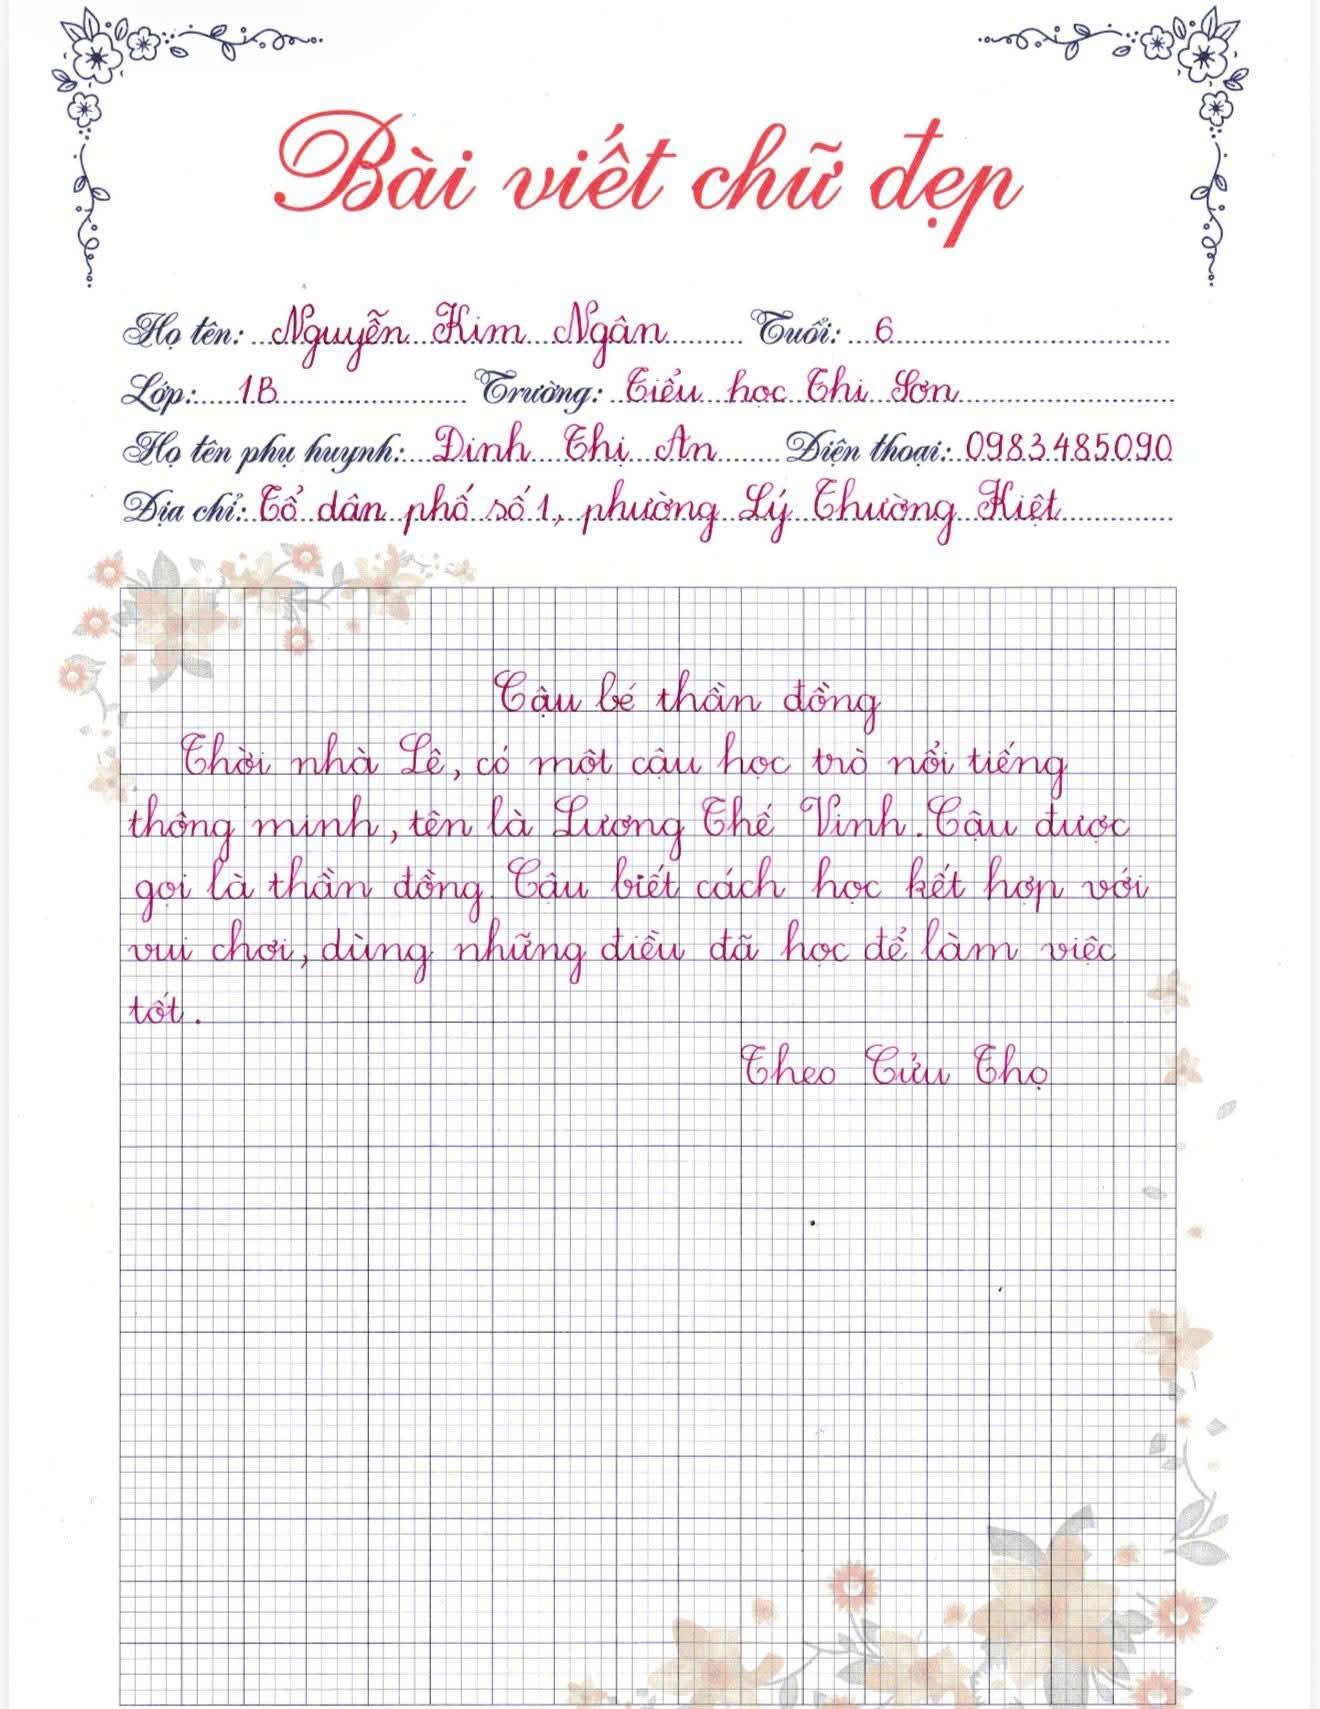 Bài viết chữ đẹp
Họ tên: Nguyễn Kim Ngân Tuổi: 6
Lớp: 1B Trường: Tiểu học Thi Sơn
Họ tên phụ huynh: Đinh Thị An Điện thoại: 0983485090
Địa chỉ: Tổ dân phố số 1, phường Lý Thường Kiệt
Cậu bé thần đồng
Thời nhà Lê, có một cậu học trò nổi tiếng
thông minh, tên là Lương Thế Vinh. Cậu được
gọi là thần đồng. Cậu biết cách học kết hợp với
vui chơi, dùng những điều đã học để làm việc
tốt.
Theo Cửu Thọ